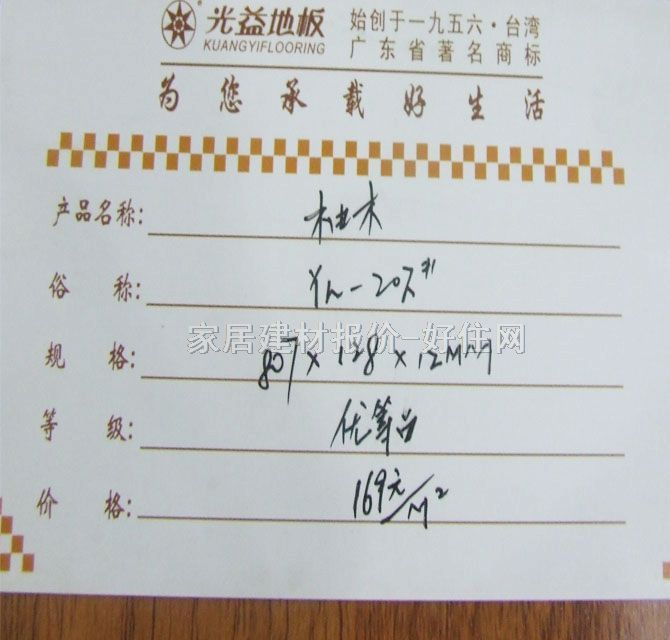 光益地板
KUANGYIFLOORING
始创于一九五六·台湾
广东省著名商标
为您承载好生活
产品名称: 柚木
俗称:
规格: 807×128×12MM
等级: 优等品
价格: 169元/M²
家居建材报价-好住网